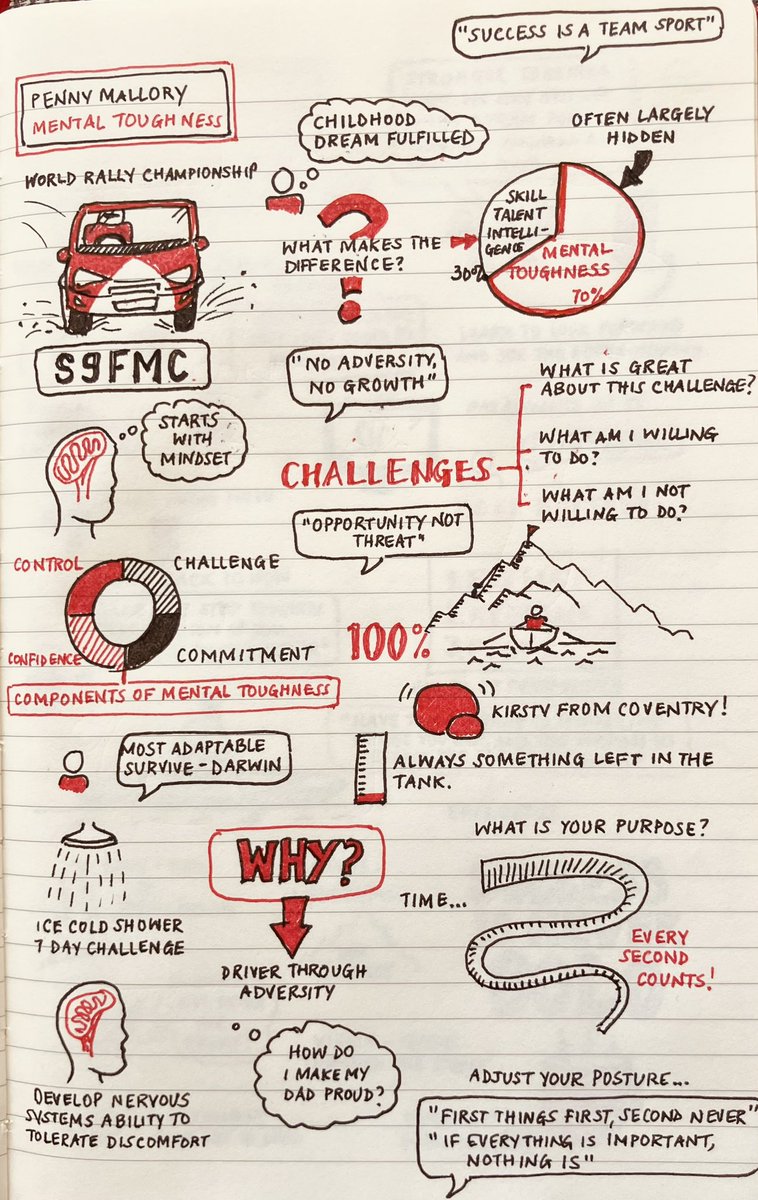 "SUCCESS IS A TEAM SPORT"
PENNY MALLORY
MENTAL TOUGHNESS
CHILDHOOD
DREAM FULFILLED
OFTEN LARGELY
HIDDEN
WORLD RALLY CHAMPIONSHIP
WHAT MAKES THE
DIFFERENCE?
SKILL
TALENT
INTELLI-
GENCE
30%
MENTAL
TOUGHNESS
70%
S9FMC
"NO ADVERSITY,
NO GROWTH"
STARTS
WITH
MINDSET
CHALLENGES
WHAT IS GREAT
ABOUT THIS CHALLENGE?
WHAT AM I WILLING
TO DO?
WHAT AM I NOT
WILLING TO DO?
"OPPORTUNITY NOT
THREAT"
CONTROL
CHALLENGE
CONFIDENCE
COMMITMENT
COMPONENTS OF MENTAL TOUGHNESS
100%
KIRSTY FROM COVENTRY!
MOST ADAPTABLE
SURVIVE - DARWIN
ALWAYS SOMETHING LEFT IN THE
TANK.
ICE COLD SHOWER
7 DAY CHALLENGE
WHY?
DRIVER THROUGH
ADVERSITY
WHAT IS YOUR PURPOSE?
TIME...
EVERY
SECOND
COUNTS!
DEVELOP NERVOUS
SYSTEMS ABILITY TO
TOLERATE DISCOMFORT
HOW DO
I MAKE MY
DAD PROUD?
ADJUST YOUR POSTURE...
"FIRST THINGS FIRST, SECOND NEVER"
"IF EVERYTHING IS IMPORTANT,
NOTHING IS"